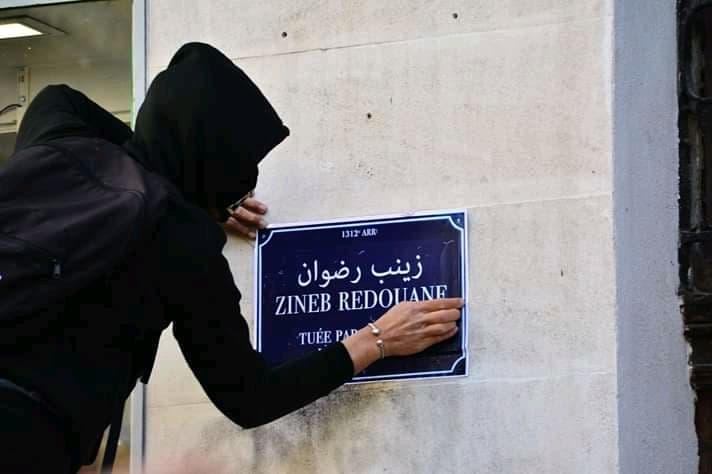 1312ᵉ ARRᵗ
زينب رضوان
ZINEB REDOUANE
TUÉE PAR